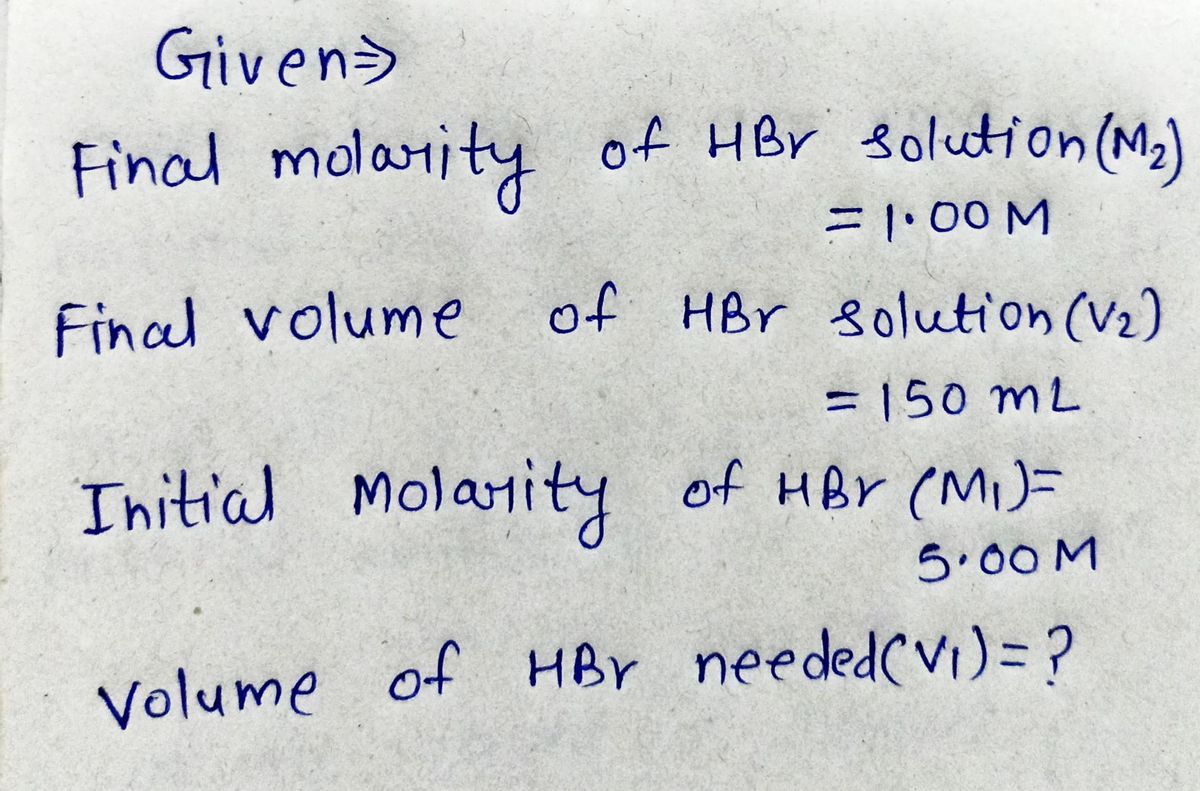 Given⇒
Final molarity of HBr solution (M₂)
= 1.00 M
Final volume of HBr solution (V₂)
= 150 mL
Initial Molarity of HBr (M₁)=
5.00 M
Volume of HBr needed (V₁) = ?